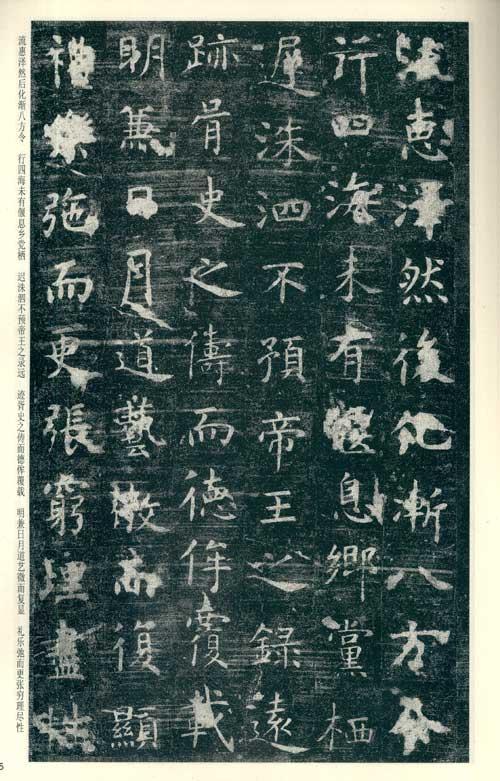 流惠澤然後化漸八方令
行四海未有偃息鄉黨栖
遲洙泗不預帝王之錄遠
跡胥史之儔而德侔覆載
明兼日月道藝微而復顯
禮樂弛而更張窮理盡性
流惠泽然后化渐八方令 行四海未有偃息乡党栖 迟洙泗不预帝王之录远 迹胥史之俦而德侔覆载 明兼日月道艺微而复显 礼乐弛而更张穷理尽性
5